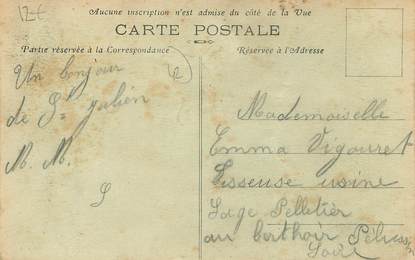 12€
Aucune inscription n'est admise du côté de la Vue
CARTE POSTALE
Partie réservée à la Correspondance
Réservée à l'Adresse
Un bonjour
de St julien
M. M.
S
Mademoiselle
Emma Vigouret
Tisseuse usine
Sage Pelletier
au berthoir
Loire